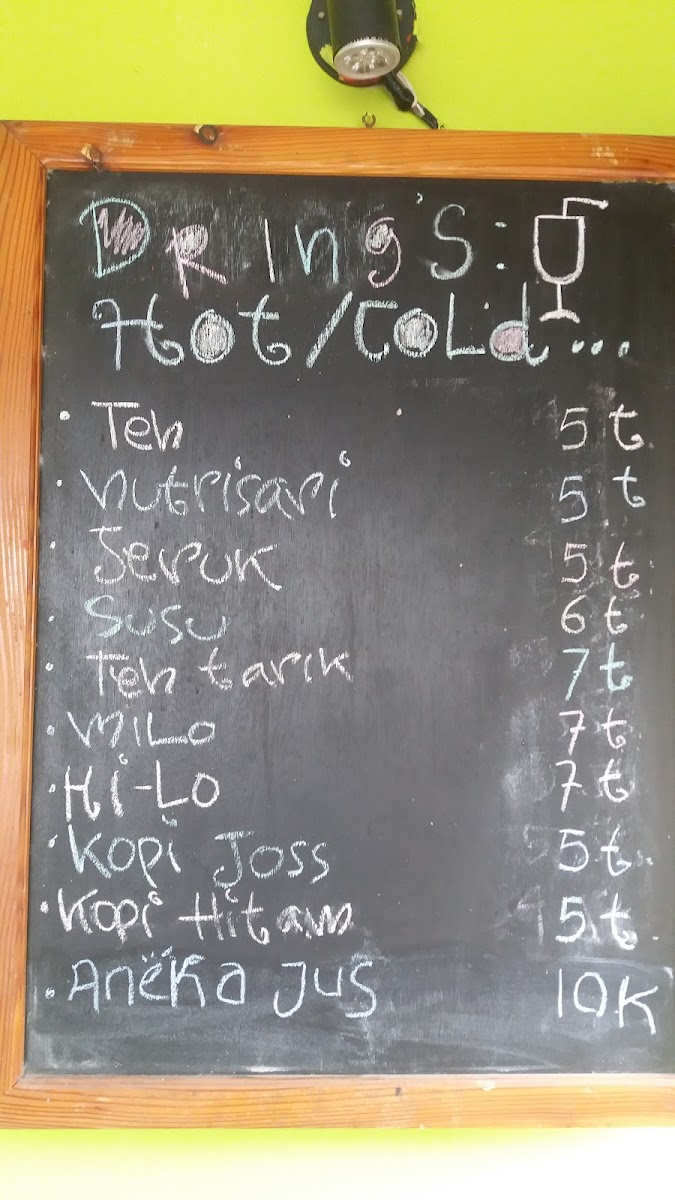 Dring's:
Hot/Cold...
• Teh 5 t
• nutrisari 5 t
• Jeruk 5 t
• Susu 6 t
• Teh tarik 7 t
• MiLo 7 t
• Hi-Lo 7 t
• Kopi Joss 5 t
• Kopi Hitam 5 t
• Anëka Jus 10K